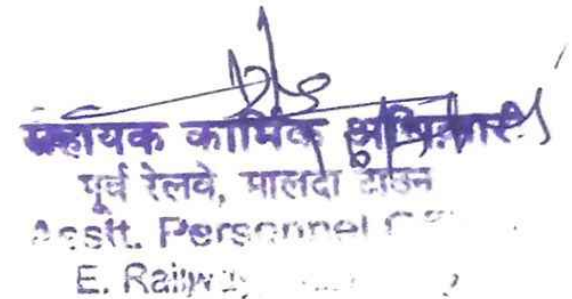 सहायक कार्मिक अधिकारी
पूर्व रेलवे, मालदा टाउन
Asstt. Personnel
E. Railway